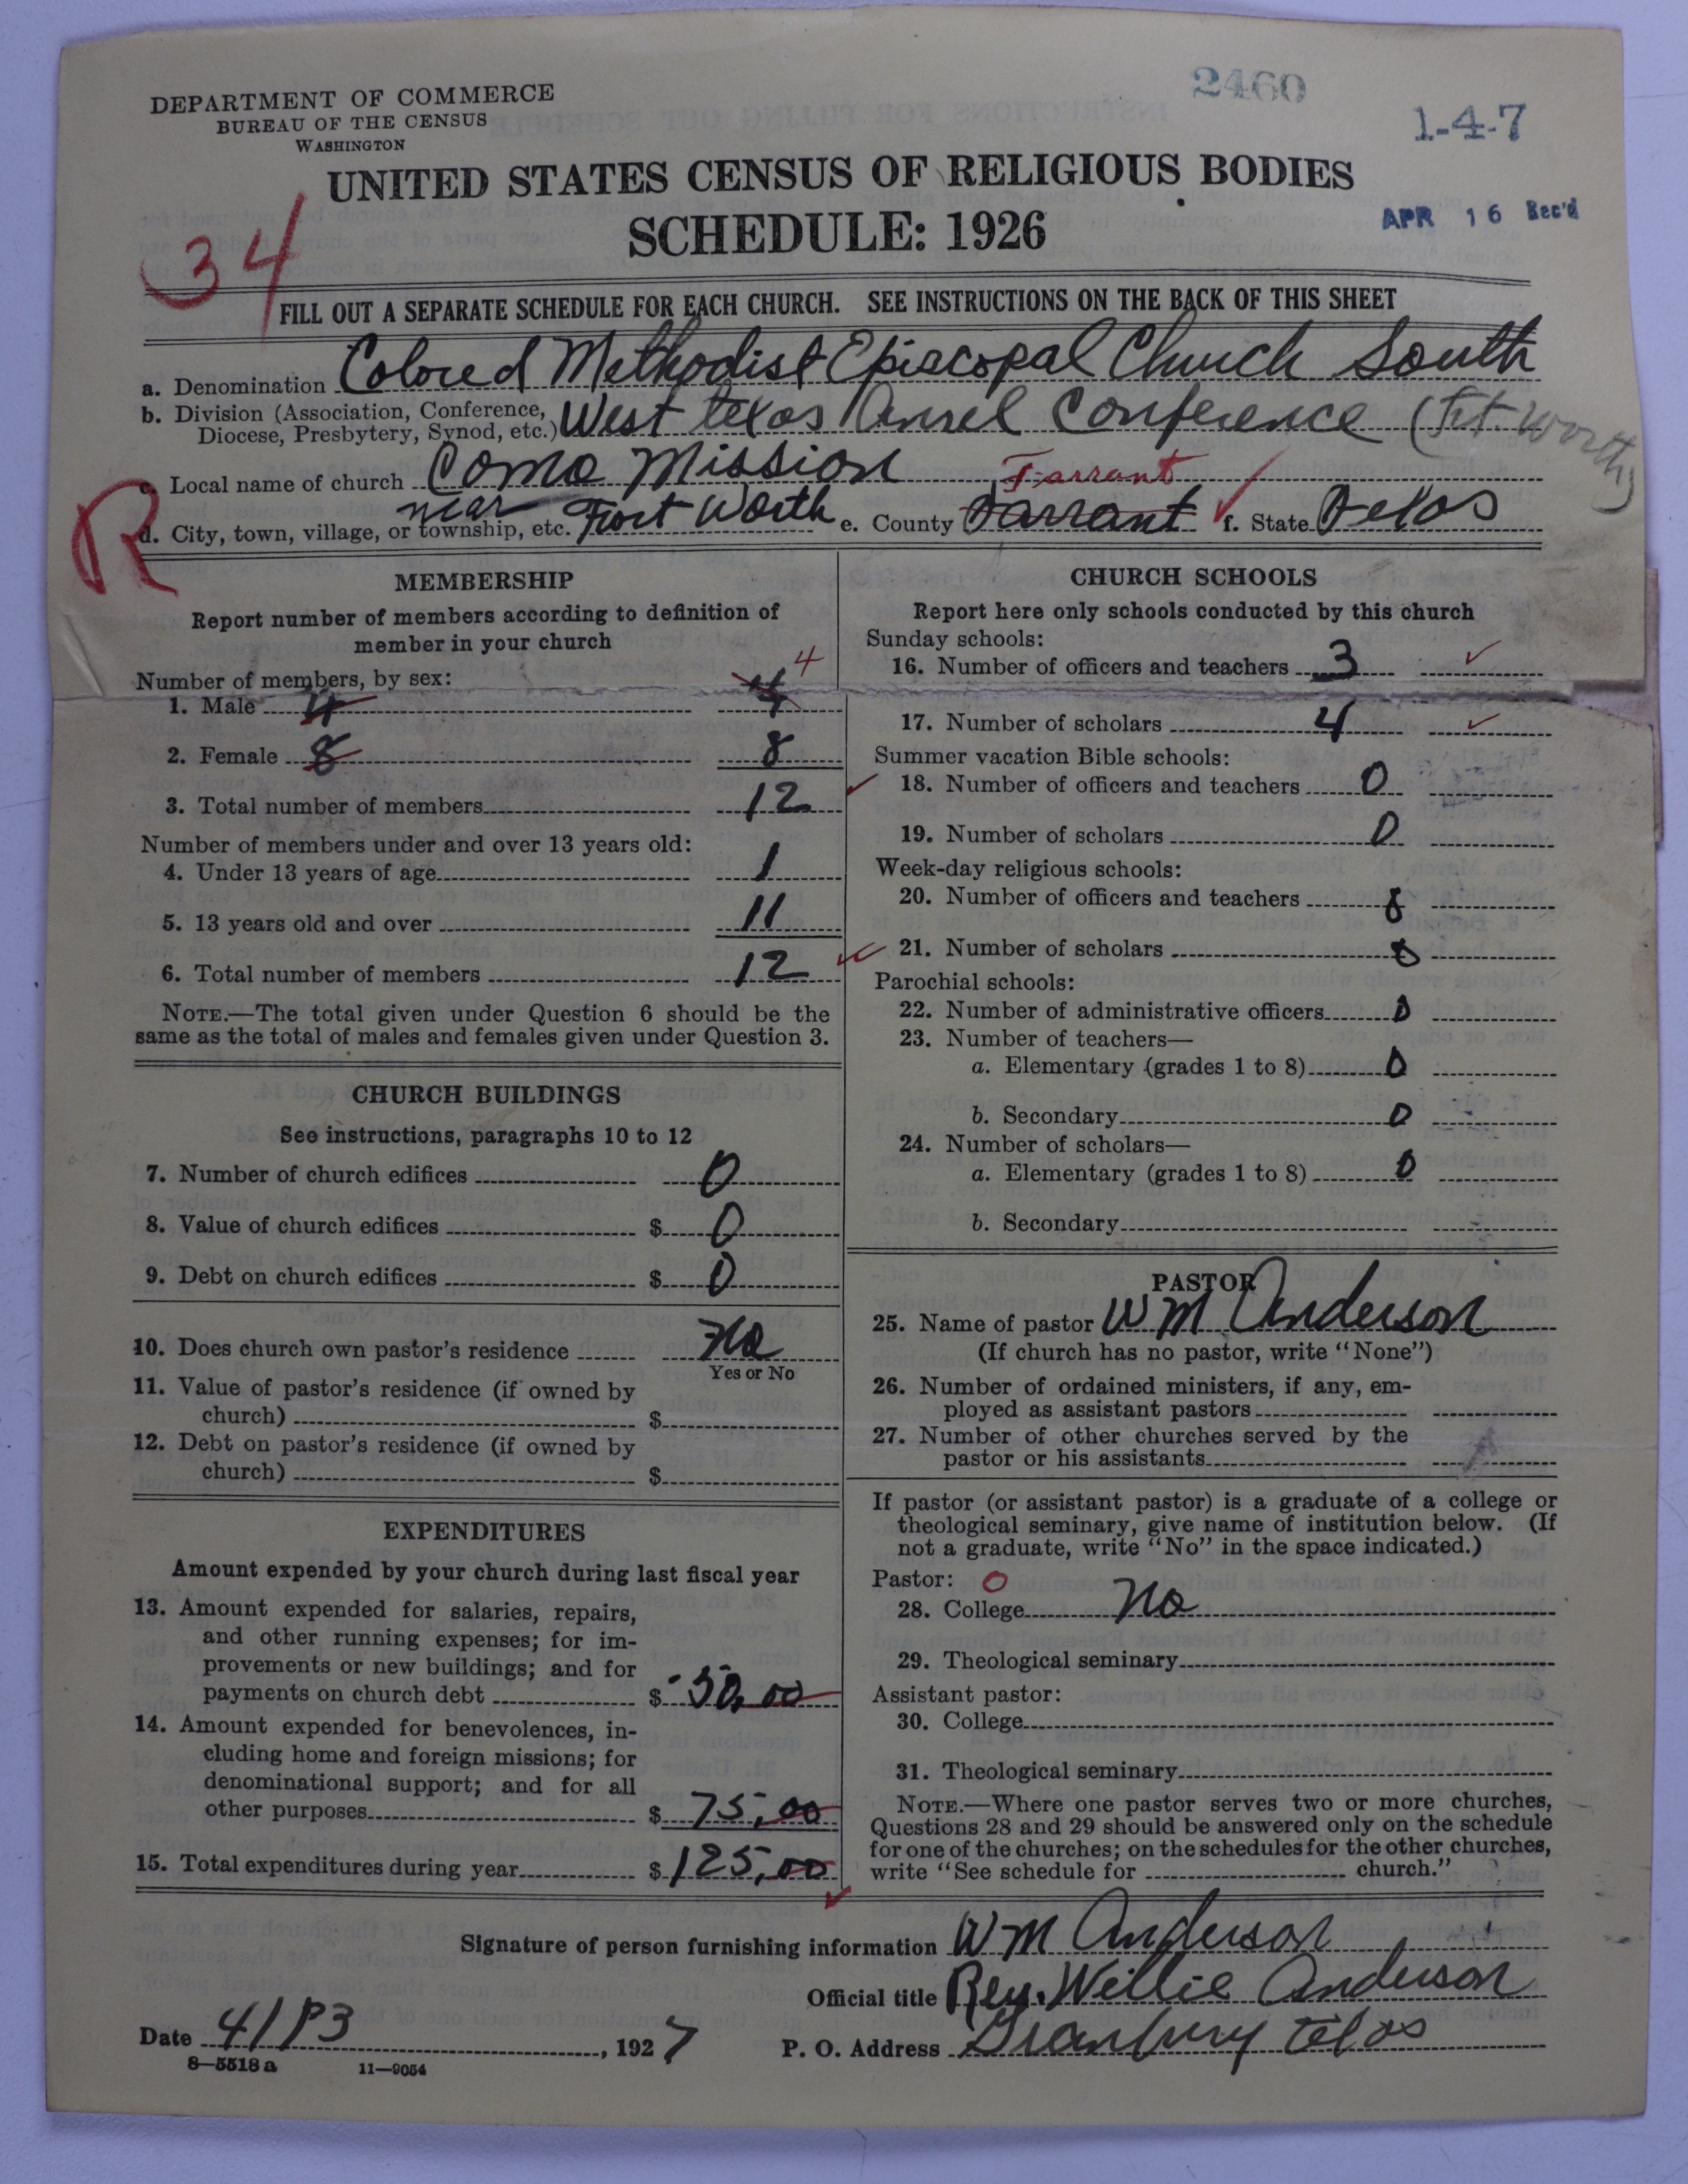 2460
DEPARTMENT OF COMMERCE
BUREAU OF THE CENSUS
WASHINGTON
1-4-7
UNITED STATES CENSUS OF RELIGIOUS BODIES
SCHEDULE: 1926
APR 16 Rec'd
34
FILL OUT A SEPARATE SCHEDULE FOR EACH CHURCH. SEE INSTRUCTIONS ON THE BACK OF THIS SHEET
a. Denomination Colored Methodist Episcopal Church South
b. Division (Association, Conference, Diocese, Presbytery, Synod, etc.) West texas Conference (Ft. Worth)
c. Local name of church Como Mission
Tarrant
R
d. City, town, village, or township, etc. near Fort Worth e. County Tarrant f. State Texas
MEMBERSHIP
Report number of members according to definition of
member in your church
Number of members, by sex:
1. Male 4 4 4
2. Female 8 8
3. Total number of members 12
Number of members under and over 13 years old:
4. Under 13 years of age 1
5. 13 years old and over 11
6. Total number of members 12
NOTE.—The total given under Question 6 should be the
same as the total of males and females given under Question 3.
CHURCH BUILDINGS
See instructions, paragraphs 10 to 12
7. Number of church edifices 0
8. Value of church edifices $ 0
9. Debt on church edifices $ 0
10. Does church own pastor's residence No
Yes or No
11. Value of pastor's residence (if owned by
church) $
12. Debt on pastor's residence (if owned by
church) $
EXPENDITURES
Amount expended by your church during last fiscal year
13. Amount expended for salaries, repairs,
and other running expenses; for im-
provements or new buildings; and for
payments on church debt $ 50.00
14. Amount expended for benevolences, in-
cluding home and foreign missions; for
denominational support; and for all
other purposes $ 75.00
15. Total expenditures during year $ 125.00
CHURCH SCHOOLS
Report here only schools conducted by this church
Sunday schools:
16. Number of officers and teachers 3
17. Number of scholars 4
Summer vacation Bible schools:
18. Number of officers and teachers 0
19. Number of scholars 0
Week-day religious schools:
20. Number of officers and teachers
21. Number of scholars
Parochial schools:
22. Number of administrative officers 0
23. Number of teachers—
a. Elementary (grades 1 to 8) 0
b. Secondary 0
24. Number of scholars—
a. Elementary (grades 1 to 8) 0
b. Secondary
PASTOR
25. Name of pastor WM Anderson
(If church has no pastor, write "None")
26. Number of ordained ministers, if any, em-
ployed as assistant pastors
27. Number of other churches served by the
pastor or his assistants
If pastor (or assistant pastor) is a graduate of a college or
theological seminary, give name of institution below. (If
not a graduate, write "No" in the space indicated.)
Pastor: 0
28. College No
29. Theological seminary
Assistant pastor:
30. College
31. Theological seminary
NOTE.—Where one pastor serves two or more churches,
Questions 28 and 29 should be answered only on the schedule
for one of the churches; on the schedules for the other churches,
write "See schedule for church."
Signature of person furnishing information WM Anderson
Official title Rev. Willie Anderson
Date 4/ , 1927
P. O. Address Granbury texas
8—5518a 11—9054